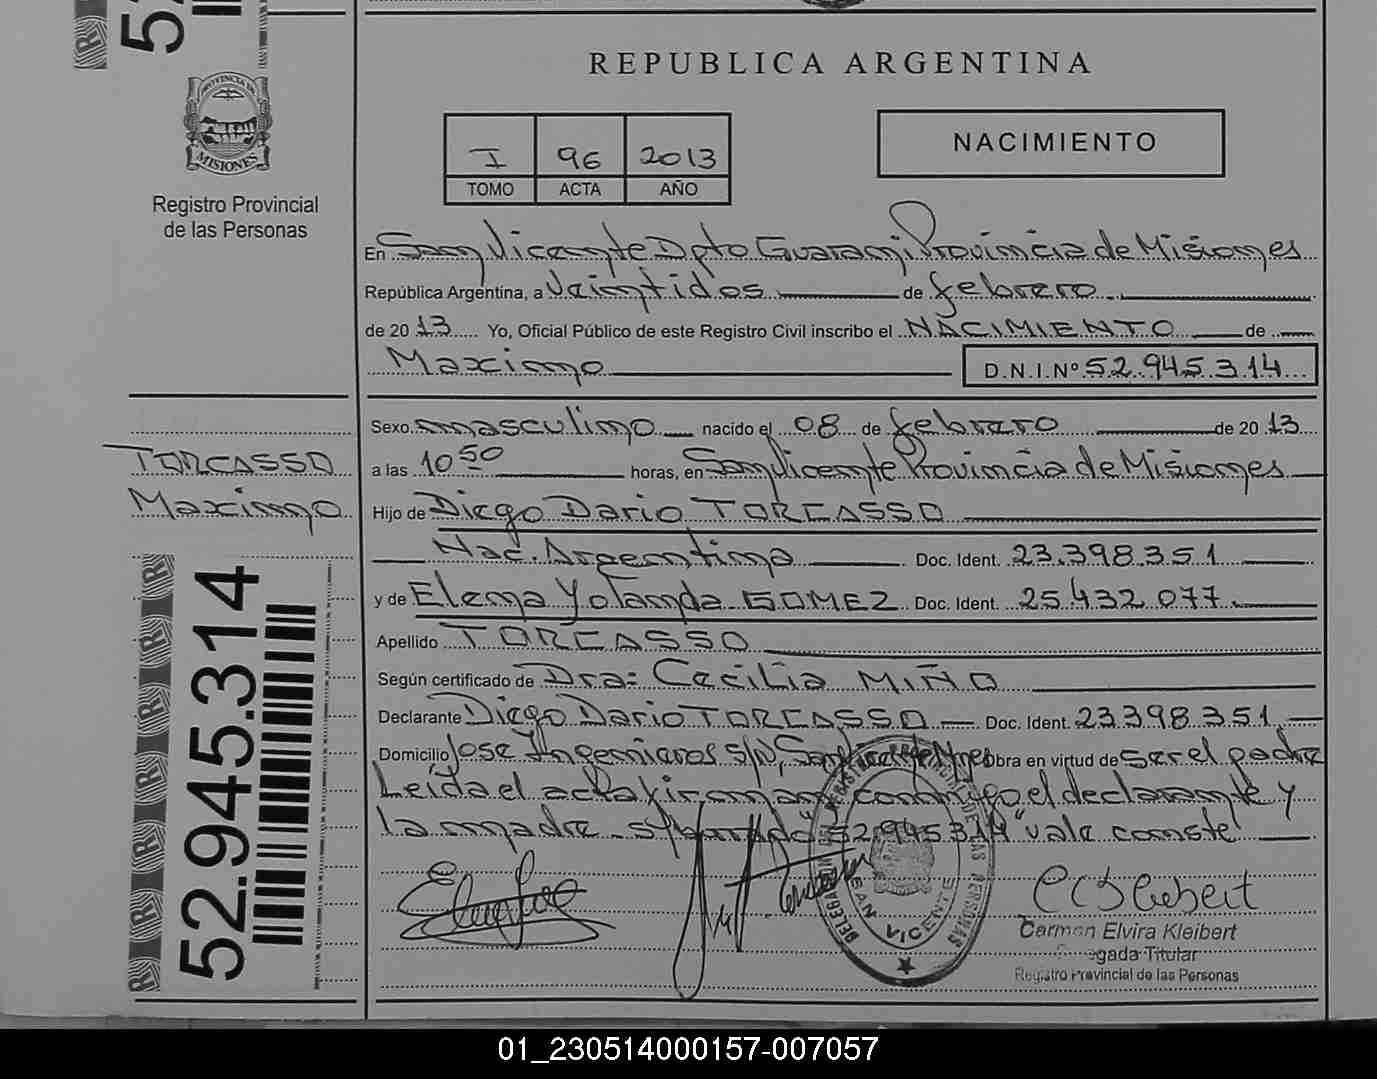 REPUBLICA ARGENTINA
MISIONES
Registro Provincial
de las Personas
I 96 2013
TOMO ACTA AÑO
NACIMIENTO
En San Vicente Dpto Guarani Provincia de Misiones
República Argentina, a Veintidos de febrero
de 2013 Yo, Oficial Público de este Registro Civil inscribo el NACIMIENTO de
Maximo D.N.I.Nº 52.945.314
Sexo masculino nacido el 08 de febrero de 2013
TORCASSO
Maximo
a las 10 50 horas, en San Vicente Provincia de Misiones
Hijo de Diego Dario TORCASSO
Nac. Argentina Doc. Ident. 23.398.351
y de Elena Yolanda GOMEZ Doc. Ident. 25.432.077
Apellido TORCASSO
Según certificado de Dra: Cecilia MIÑO
Declarante Diego Dario TORCASSO Doc. Ident. 23398.351
Domicilio Jose Ingenieros s/n, San Vicente Mnes Obra en virtud de Ser el padre
Leída el acta firman conmigo el declarante y
la madre - s/borrado "52.945.314" vale conste
52.945.314
SAN VICENTE
Carmen Elvira Kleibert
egada Titular
Registro Provincial de las Personas
01_230514000157-007057